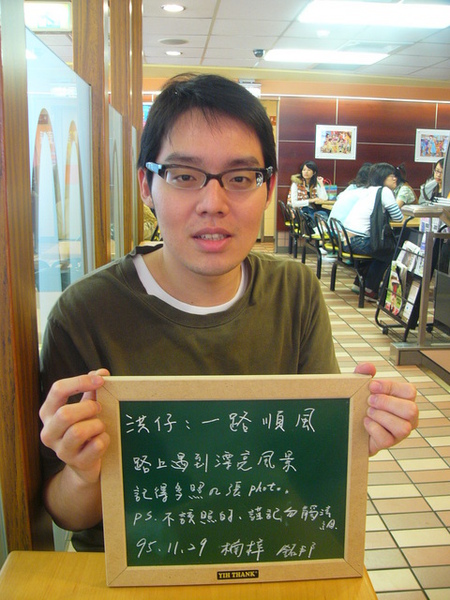 洪仔：一路順風
路上遇到漂亮風景
記得多照几張photo。
P.S. 不該照的、謹記勿觸法
95.11.29 楠梓
YIH THANK™